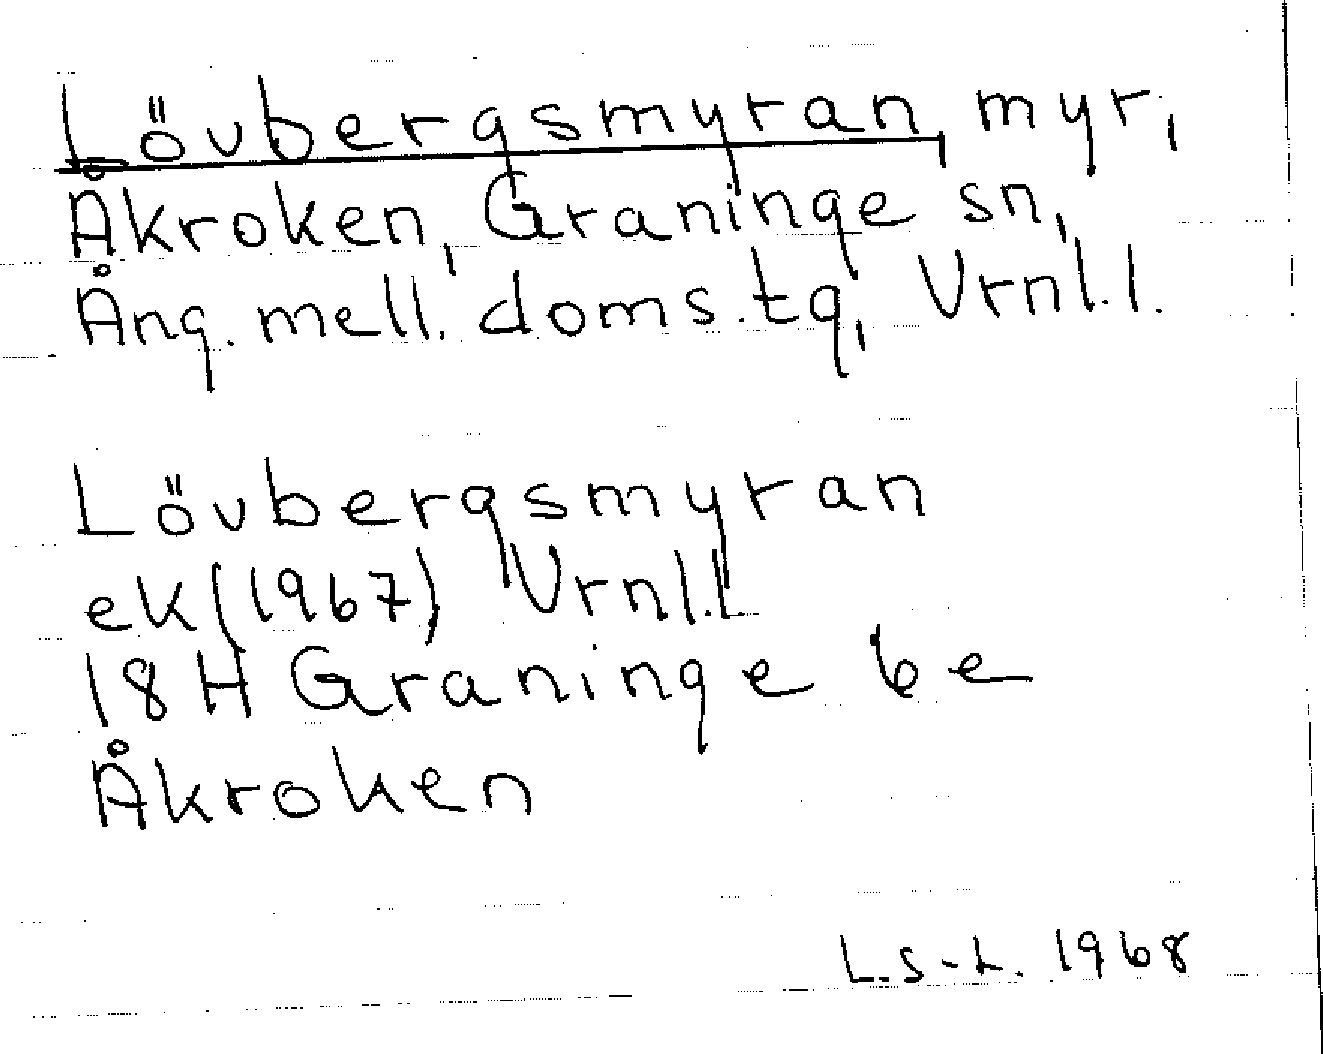 Lövbergsmyran, myr,
Åkroken, Graninge sn,
Ång. mell. doms.tg, Vrnl.l.
Lövbergsmyran
ek (1967) Vrnl.l.
18H Graninge 6e
Åkroken
L.S-L. 1968